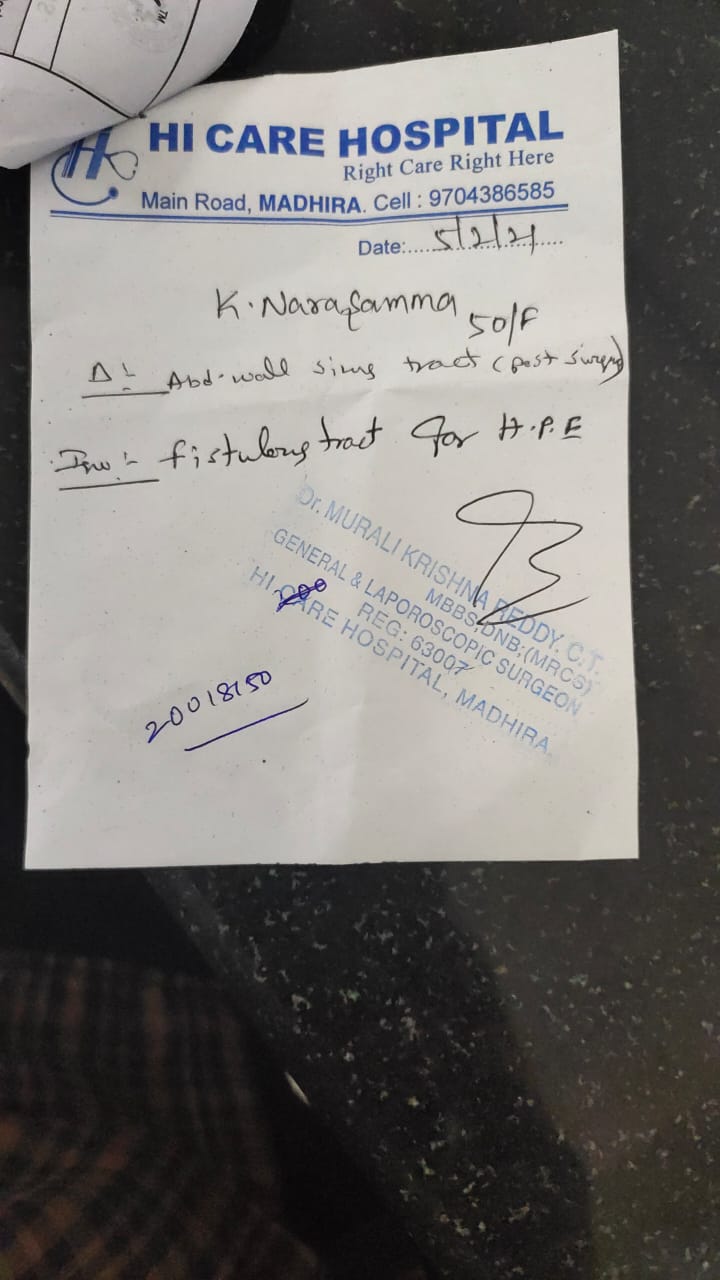 HI CARE HOSPITAL
Right Care Right Here
Main Road, MADHIRA. Cell : 9704386585
Date:.....5/2/21.....
K. Narasamma
50/F
Δ:- Abd. wall sinus tract (post surgery)
Inv:- fistulous tract for H.P.E
Dr. MURALI KRISHNA REDDY. C.T.
MBBS;DNB;(MRCS)
GENERAL & LAPOROSCOPIC SURGEON
REG: 63007
HI CARE HOSPITAL, MADHIRA.
20018150